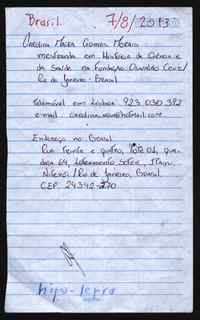 Brasil 7/8/2013
Carolina Maíra Gomes Morais
mestranda em História da Ciência e
da Saúde na Fundação Oswaldo Cruz/
Rio de Janeiro - Brasil
Telemóvel em Lisboa 923 030 382
e-mail:
Endereço no Brasil
Rua trinta e quatro, lote 01, qua-
dra 64, Loteamento Soter, Itaipu
Niterói / Rio de Janeiro, Brasil
CEP. 24342-270
hipo-lepra